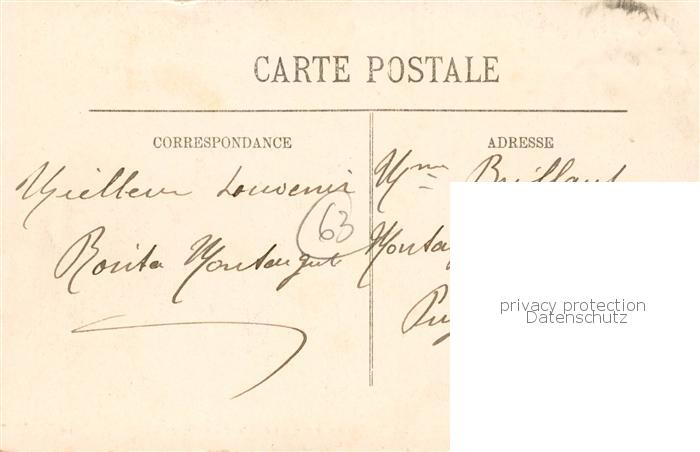 CARTE POSTALE
CORRESPONDANCE
ADRESSE
Meilleur souvenir
Rosita Montaigut
63
Mme Brillant
Monta
Puy
privacy protection
Datenschutz